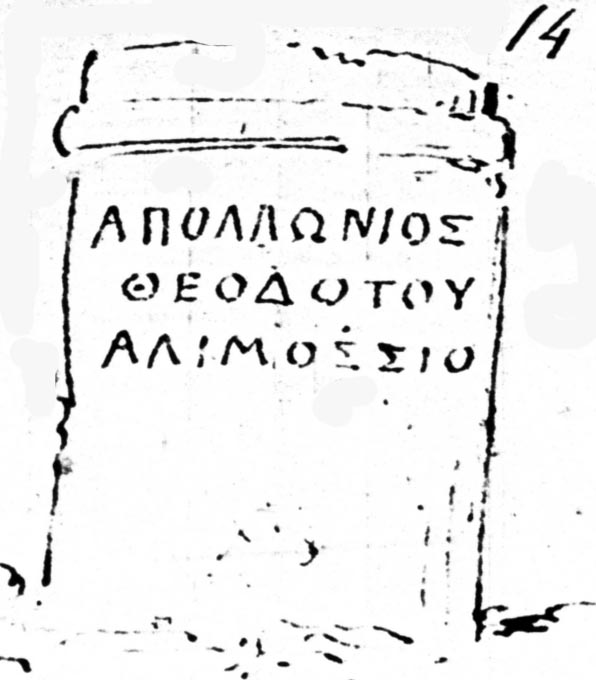 14
ΑΠΟΛΛΩΝΙΟΣ
ΘΕΟΔΟΤΟΥ
ΑΛΙΜΟΣΣΙΟ